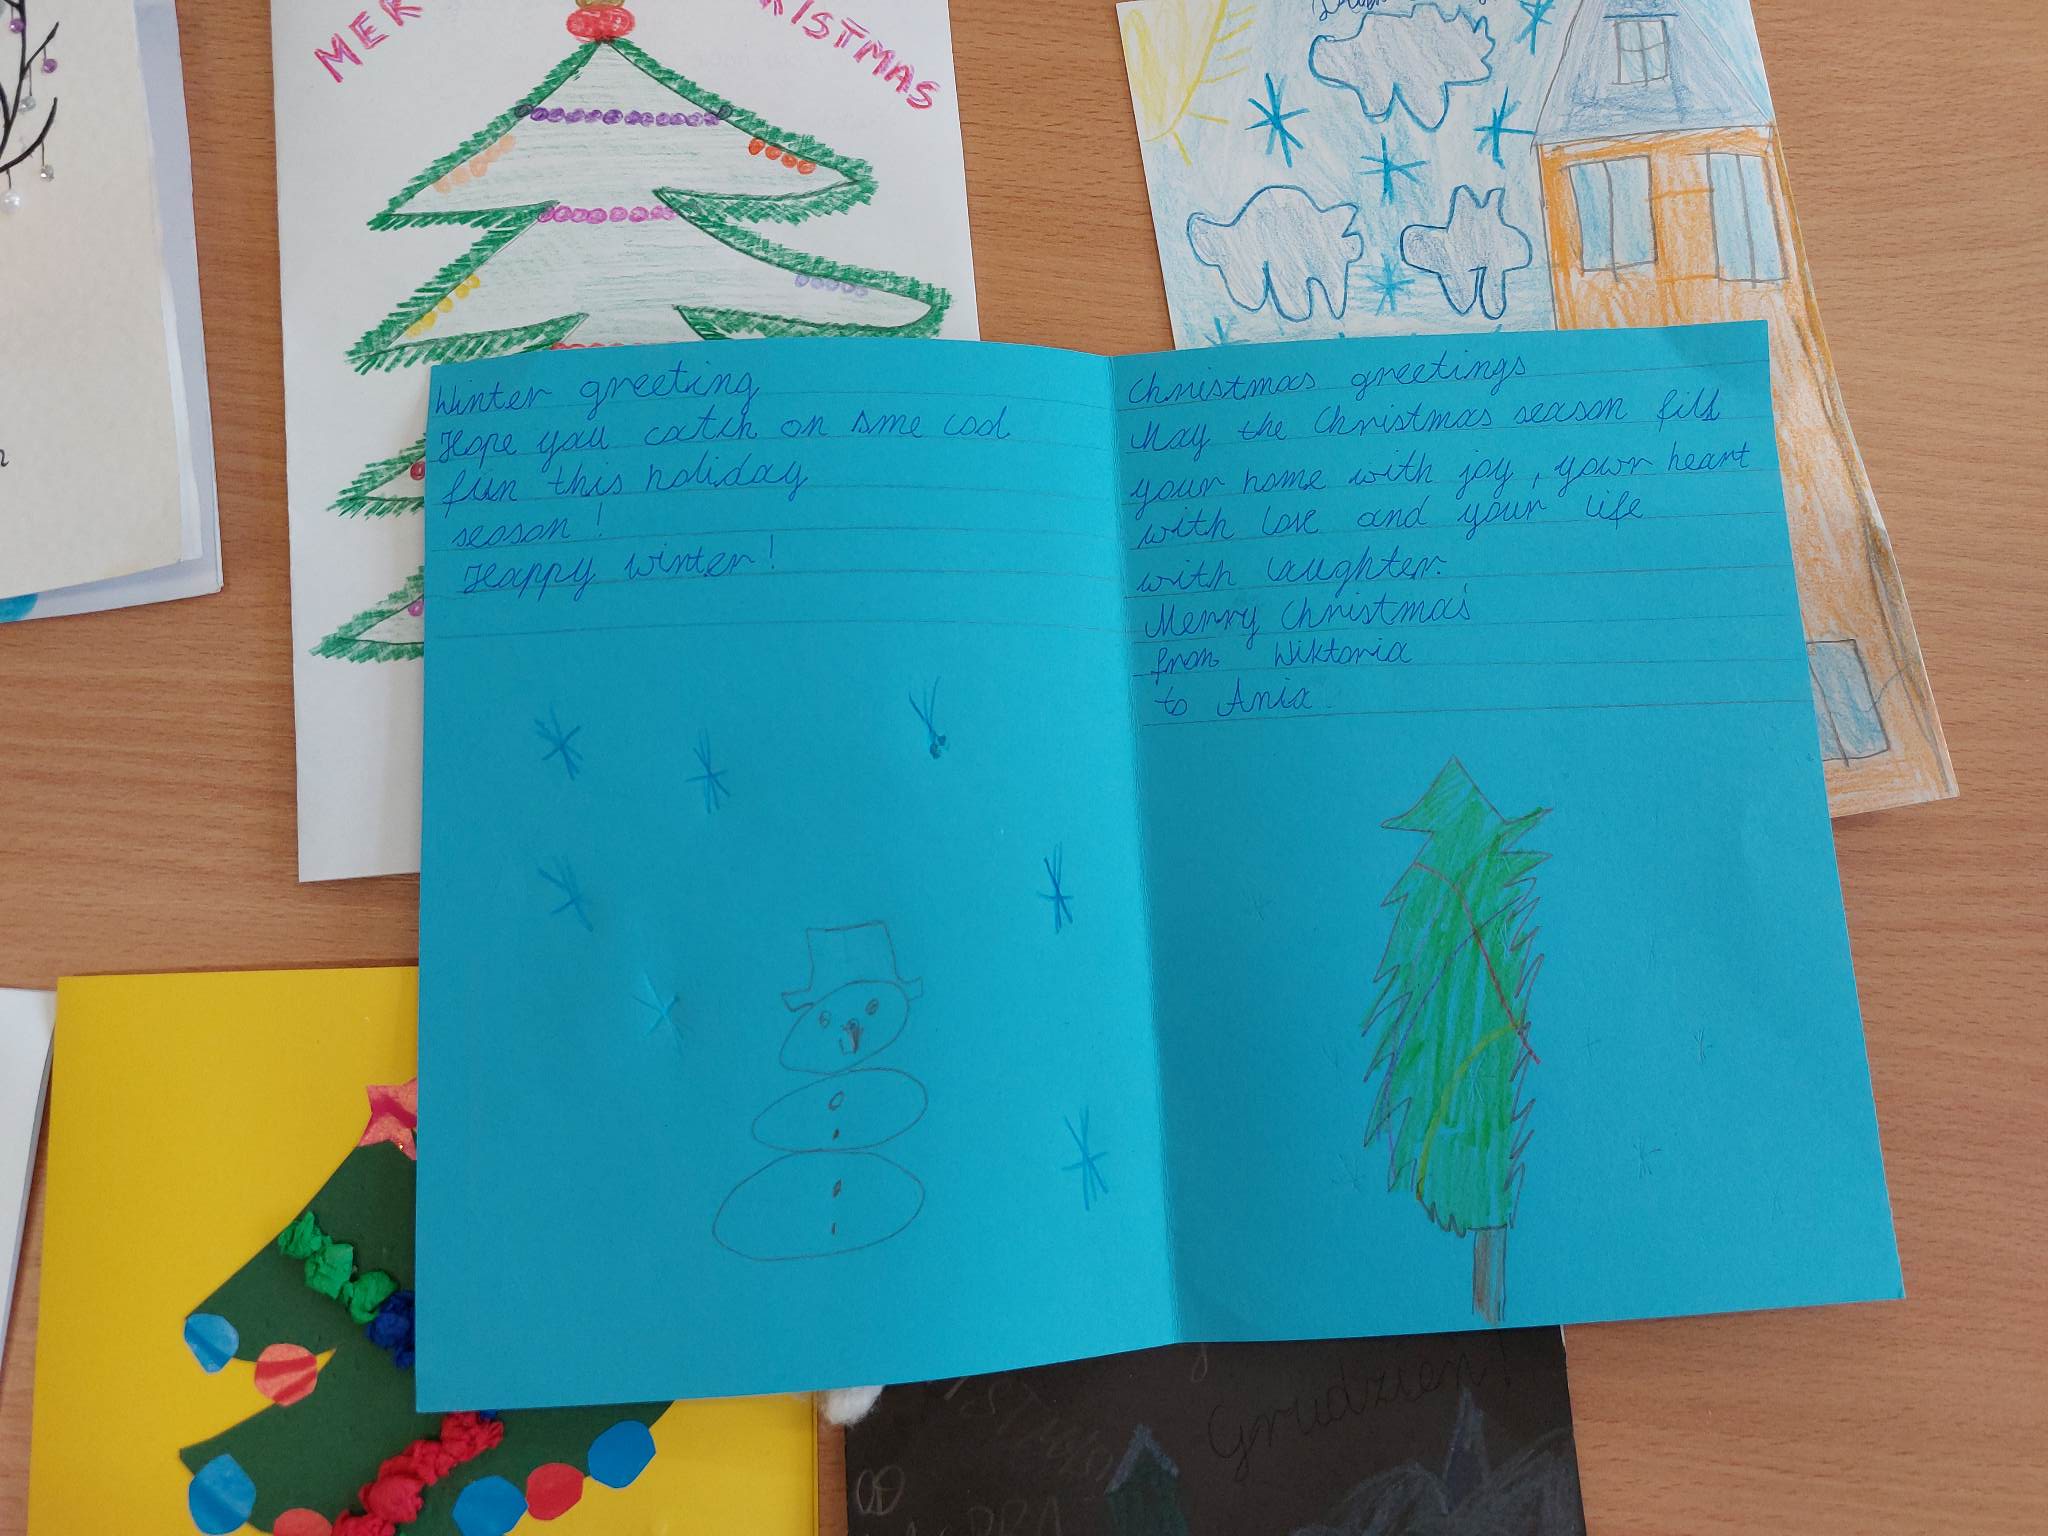 MER
RISTMAS
Winter greeting
Hope you catch on sme cool
fun this holiday
season!
Happy winter!
Christmas greetings
May the Christmas season fill
your home with joy, yowr heart
with love and your life
with laughter.
Merry Christmas
from Wiktoria
to Ania.
Grudzień!